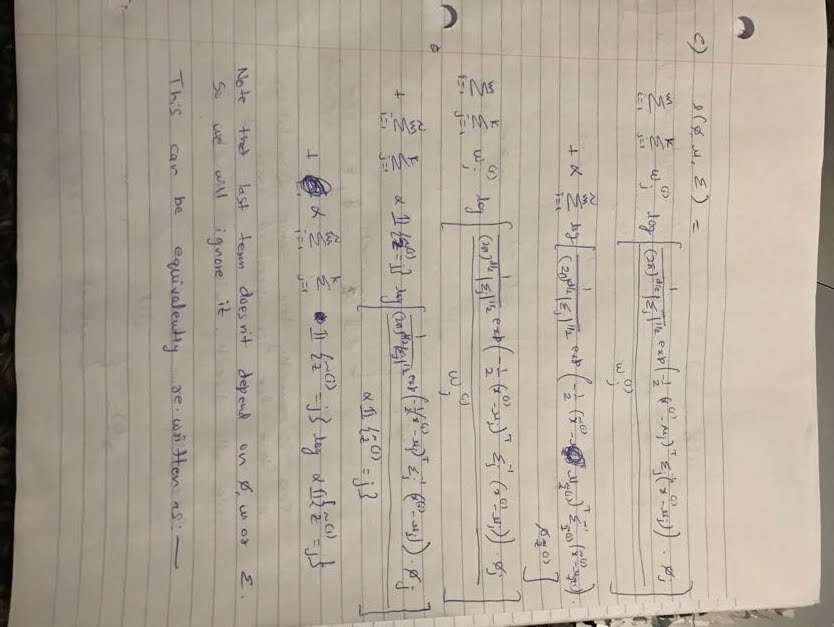 c) ℓ(φ, μ, Σ) =
Σ_{i=1}^{m} Σ_{j=1}^{k} w_j^{(i)} log [ 1/((2π)^{d/2} |Σ_j|^{1/2}) exp(-1/2 (x^{(i)} - μ_j)^T Σ_j^{-1} (x^{(i)} - μ_j)) · φ_j / w_j^{(i)} ]
+ α Σ_{i=1}^{m̃} log [ 1/((2π)^{d/2} |Σ_j|^{1/2}) exp(-1/2 (x̃^{(i)} - μ_{z̃^{(i)}})^T Σ_{z̃^{(i)}}^{-1} (x̃^{(i)} - μ_{z̃^{(i)}})) · φ_{z̃^{(i)}} ]
Σ_{i=1}^{m} Σ_{j=1}^{k} w_j^{(i)} log [ 1/((2π)^{d/2} |Σ_j|^{1/2}) exp(-1/2 (x^{(i)} - μ_j)^T Σ_j^{-1} (x^{(i)} - μ_j)) · φ_j / w_j^{(i)} ]
+ Σ_{i=1}^{m̃} Σ_{j=1}^{k} α 𝟙{z̃^{(i)} = j} log [ 1/((2π)^{d/2} |Σ_j|^{1/2}) exp(-1/2 (x̃^{(i)} - μ_j)^T Σ_j^{-1} (x̃^{(i)} - μ_j)) · φ_j / α 𝟙{z̃^{(i)} = j} ]
+ α Σ_{i=1}^{m̃} Σ_{j=1}^{k} 𝟙{z̃^{(i)} = j} log α 𝟙{z̃^{(i)} = j}
Note that last term doesn't depend on φ, μ or Σ.
So we will ignore it.
This can be equivalently re-written as: —